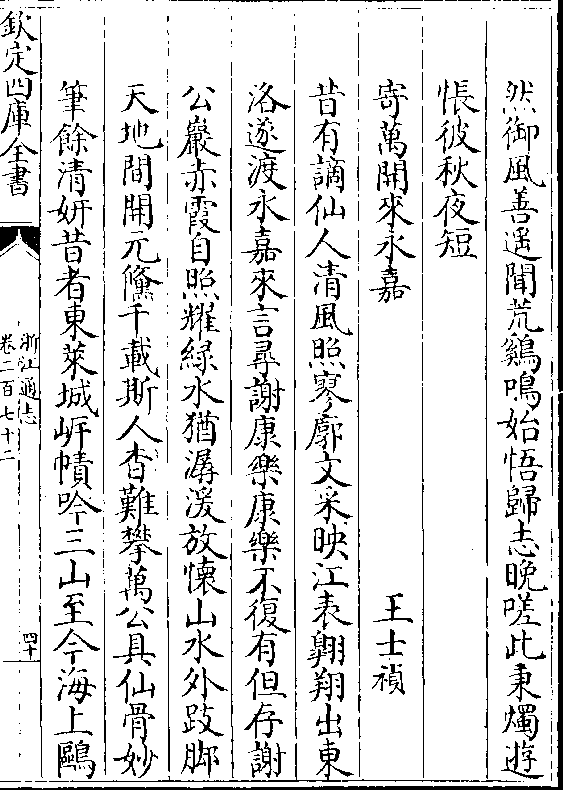 然御風善遥聞荒鷄鳴始悟歸志晚嗟此秉燭遊
悵彼秋夜短
寄萬開來永嘉 王士禎
昔有謫仙人清風照寥廓文采映江表翺翔出東
洛遂渡永嘉來言尋謝康樂康樂不復有但存謝
公巖赤霞自照耀緑水猶潺湲放懷山水外跂脚
天地間開元儵千載斯人杳難攀萬公具仙骨妙
筆餘清妍昔者東萊城岸幘吟三山至今海上鷗
欽定四庫全書
浙江通志
卷二百七十二
四十